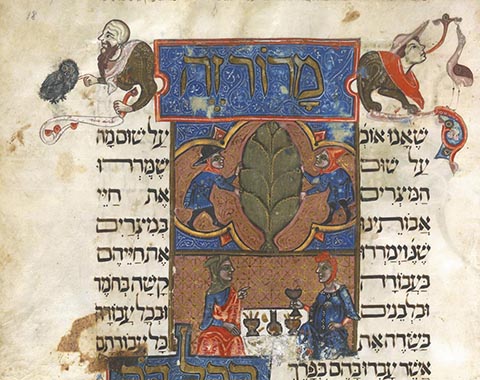 18
מרור זה
שאנו אוכ על שום מה
על שום שמררו
המצרים את חיי
אבותינו במצרים
שנ' וימררו את חייהם
בעבודה קשה בחמר
ובלבנים ובכל עבודה
בשדה את כל עבודתם
אשר עבדו בהם בפרך
בכל דר